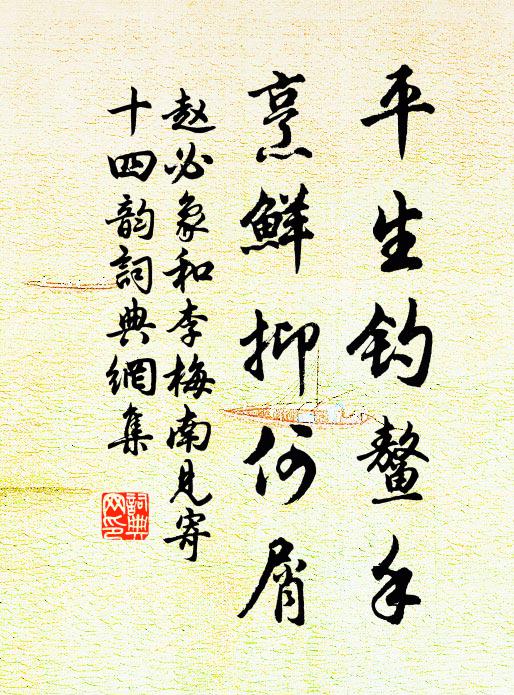 平生钓鳌手
烹鮮抑何屑
赵必象和李梅南見寄
十四韵詞典網集
詞典網印